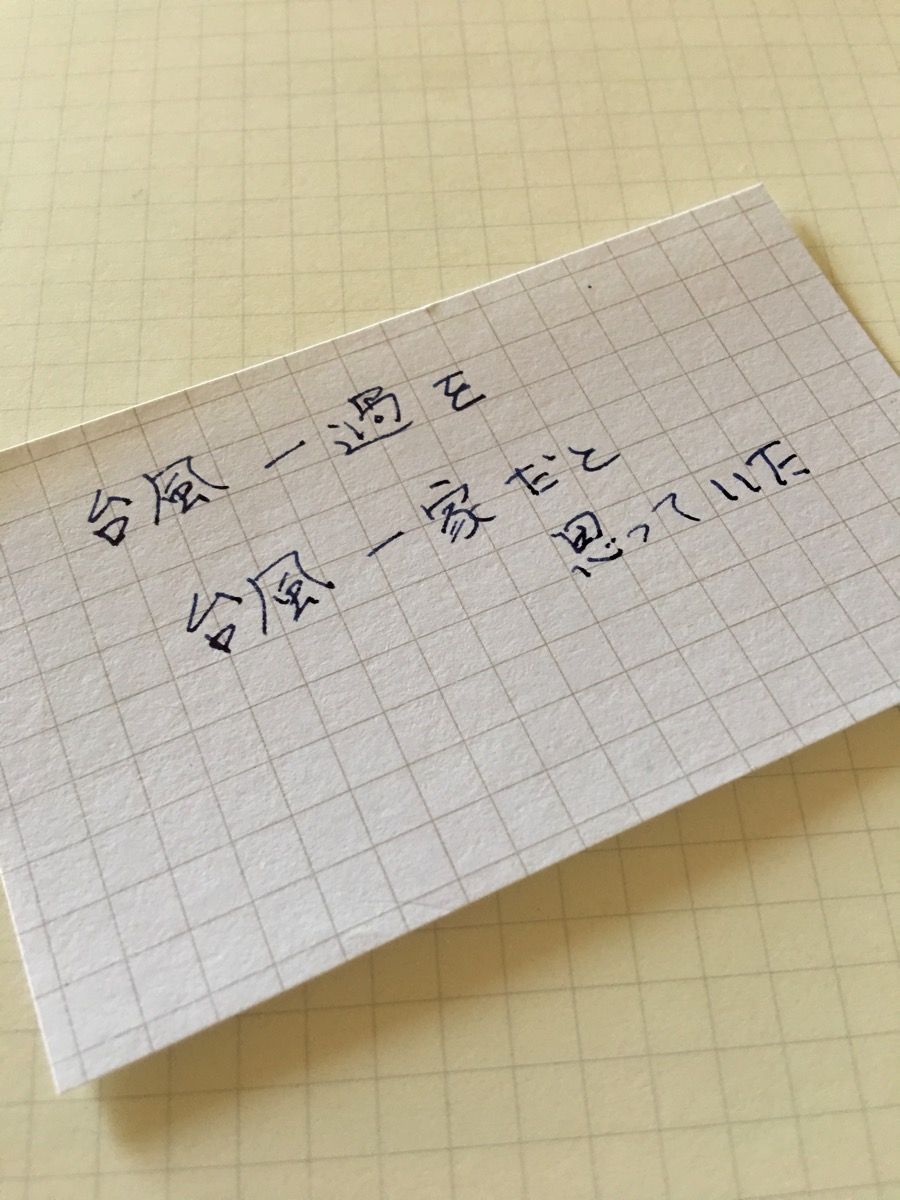 台風一過を
台風一家だと
思っていた